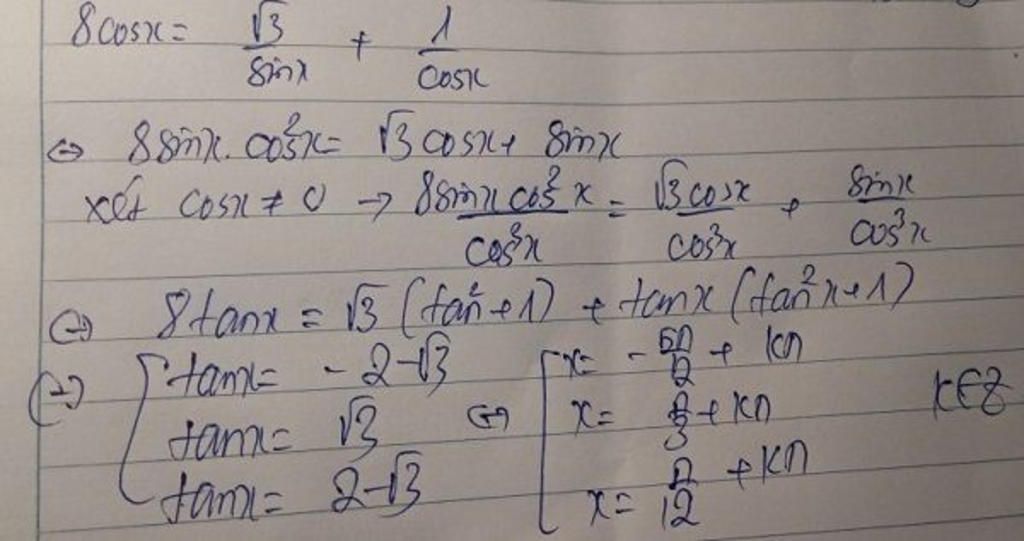 8cosx = √3/sinx + 1/cosx
⇔ 8sinx.cos²x = √3cosx + sinx
xét cosx ≠ 0 → 8sinxcos²x/cos³x = √3cosx/cos³x + sinx/cos³x
⇔ 8tanx = √3(tan²+1) + tanx(tan²x+1)
⇔ [tanx = -2-√3 ⇔ [x = -5π/12 + kπ
tanx = √3 x = π/3 + kπ k∈Z
tanx = 2-√3 x = π/12 + kπ